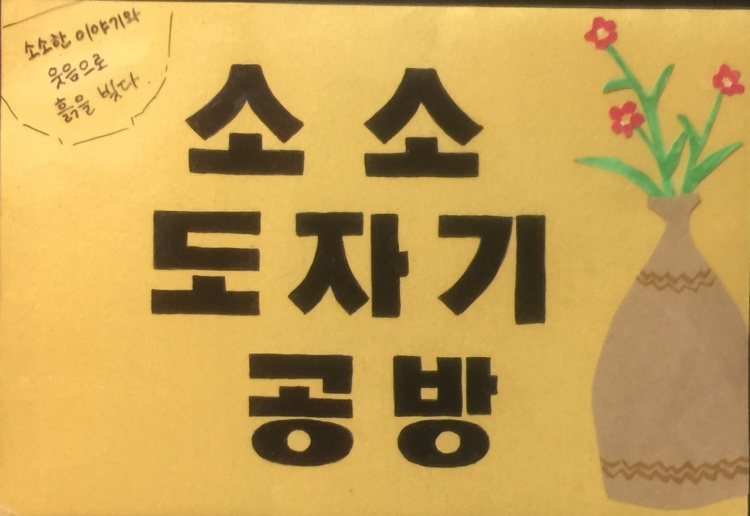 소소한 이야기와
웃음으로
흙을 빚다
소소
도자기
공방